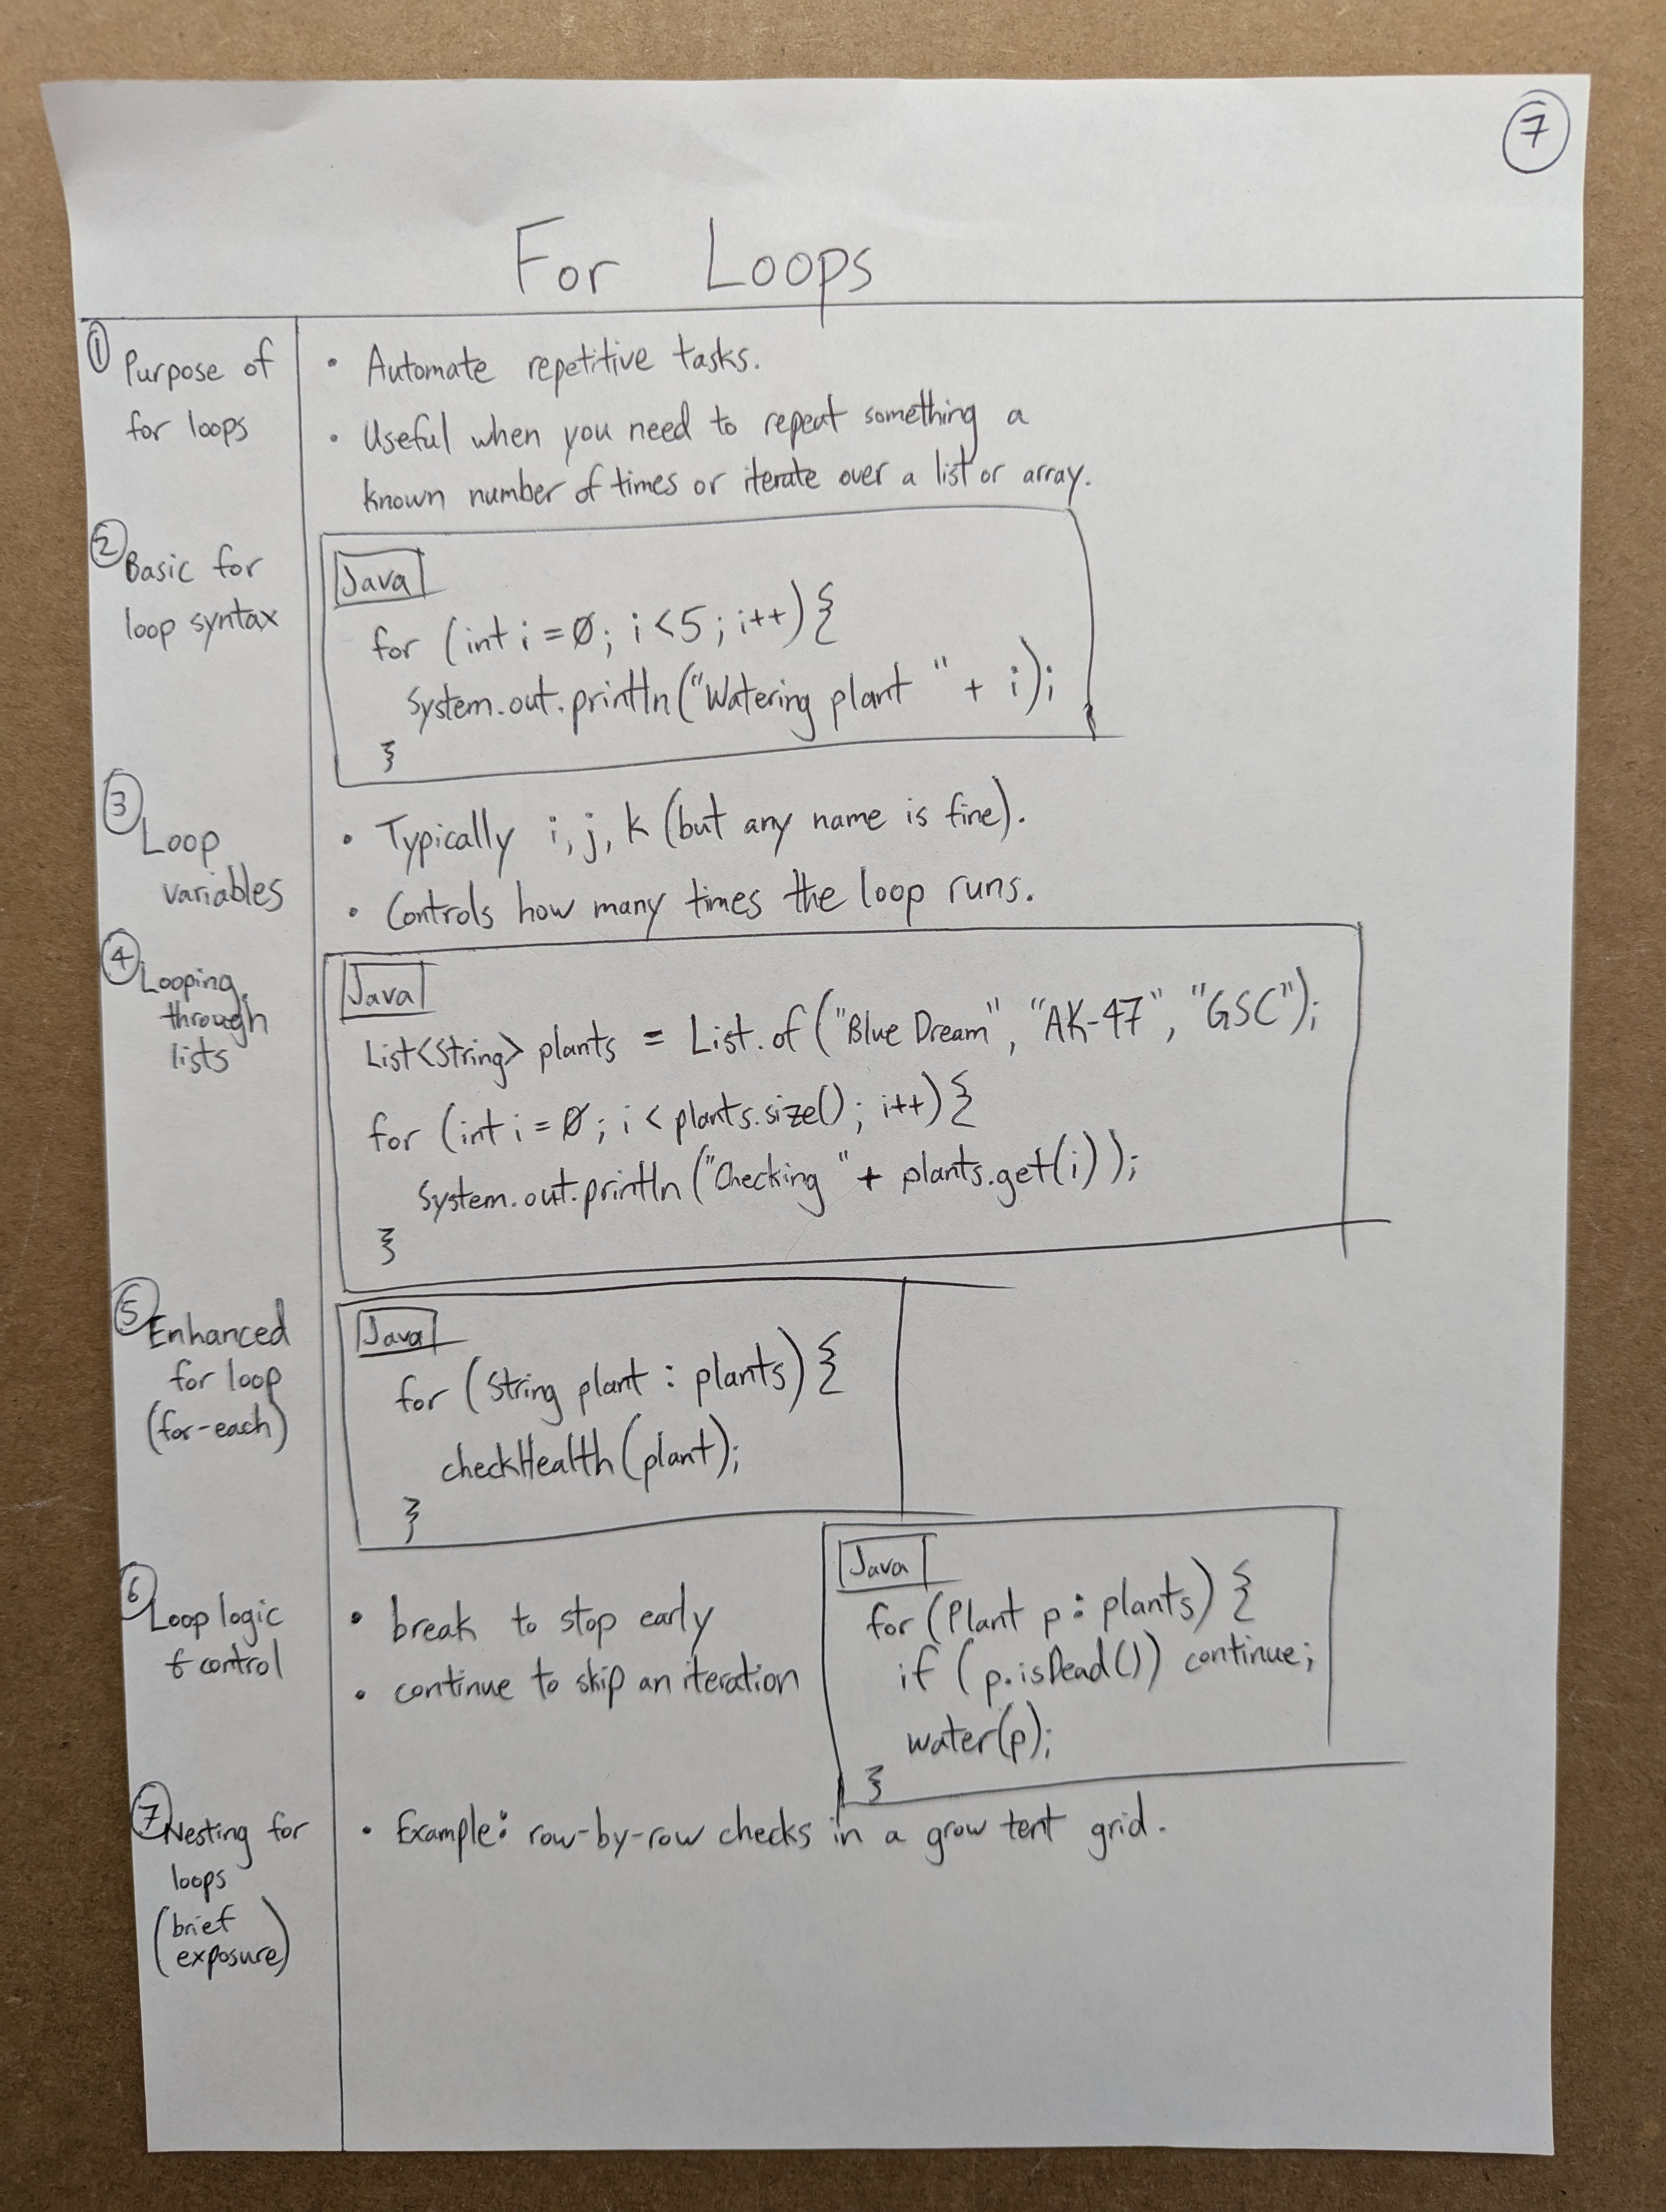 7
For Loops
① Purpose of
for loops
• Automate repetitive tasks.
• Useful when you need to repeat something a
known number of times or iterate over a list or array.
② Basic for
loop syntax
Java
for (int i = 0; i < 5; i++) {
System.out.println("Watering plant " + i);
}
③ Loop
variables
• Typically i, j, k (but any name is fine).
• Controls how many times the loop runs.
④ Looping
through
lists
Java
List<String> plants = List.of("Blue Dream", "AK-47", "GSC");
for (int i = 0; i < plants.size(); i++) {
System.out.println("Checking " + plants.get(i));
}
⑤ Enhanced
for loop
(for-each)
Java
for (String plant : plants) {
checkHealth(plant);
}
⑥ Loop logic
& control
• break to stop early
• continue to skip an iteration
Java
for (Plant p : plants) {
if (p.isDead()) continue;
water(p);
}
⑦ Nesting for
loops
(brief
exposure)
• Example: row-by-row checks in a grow tent grid.